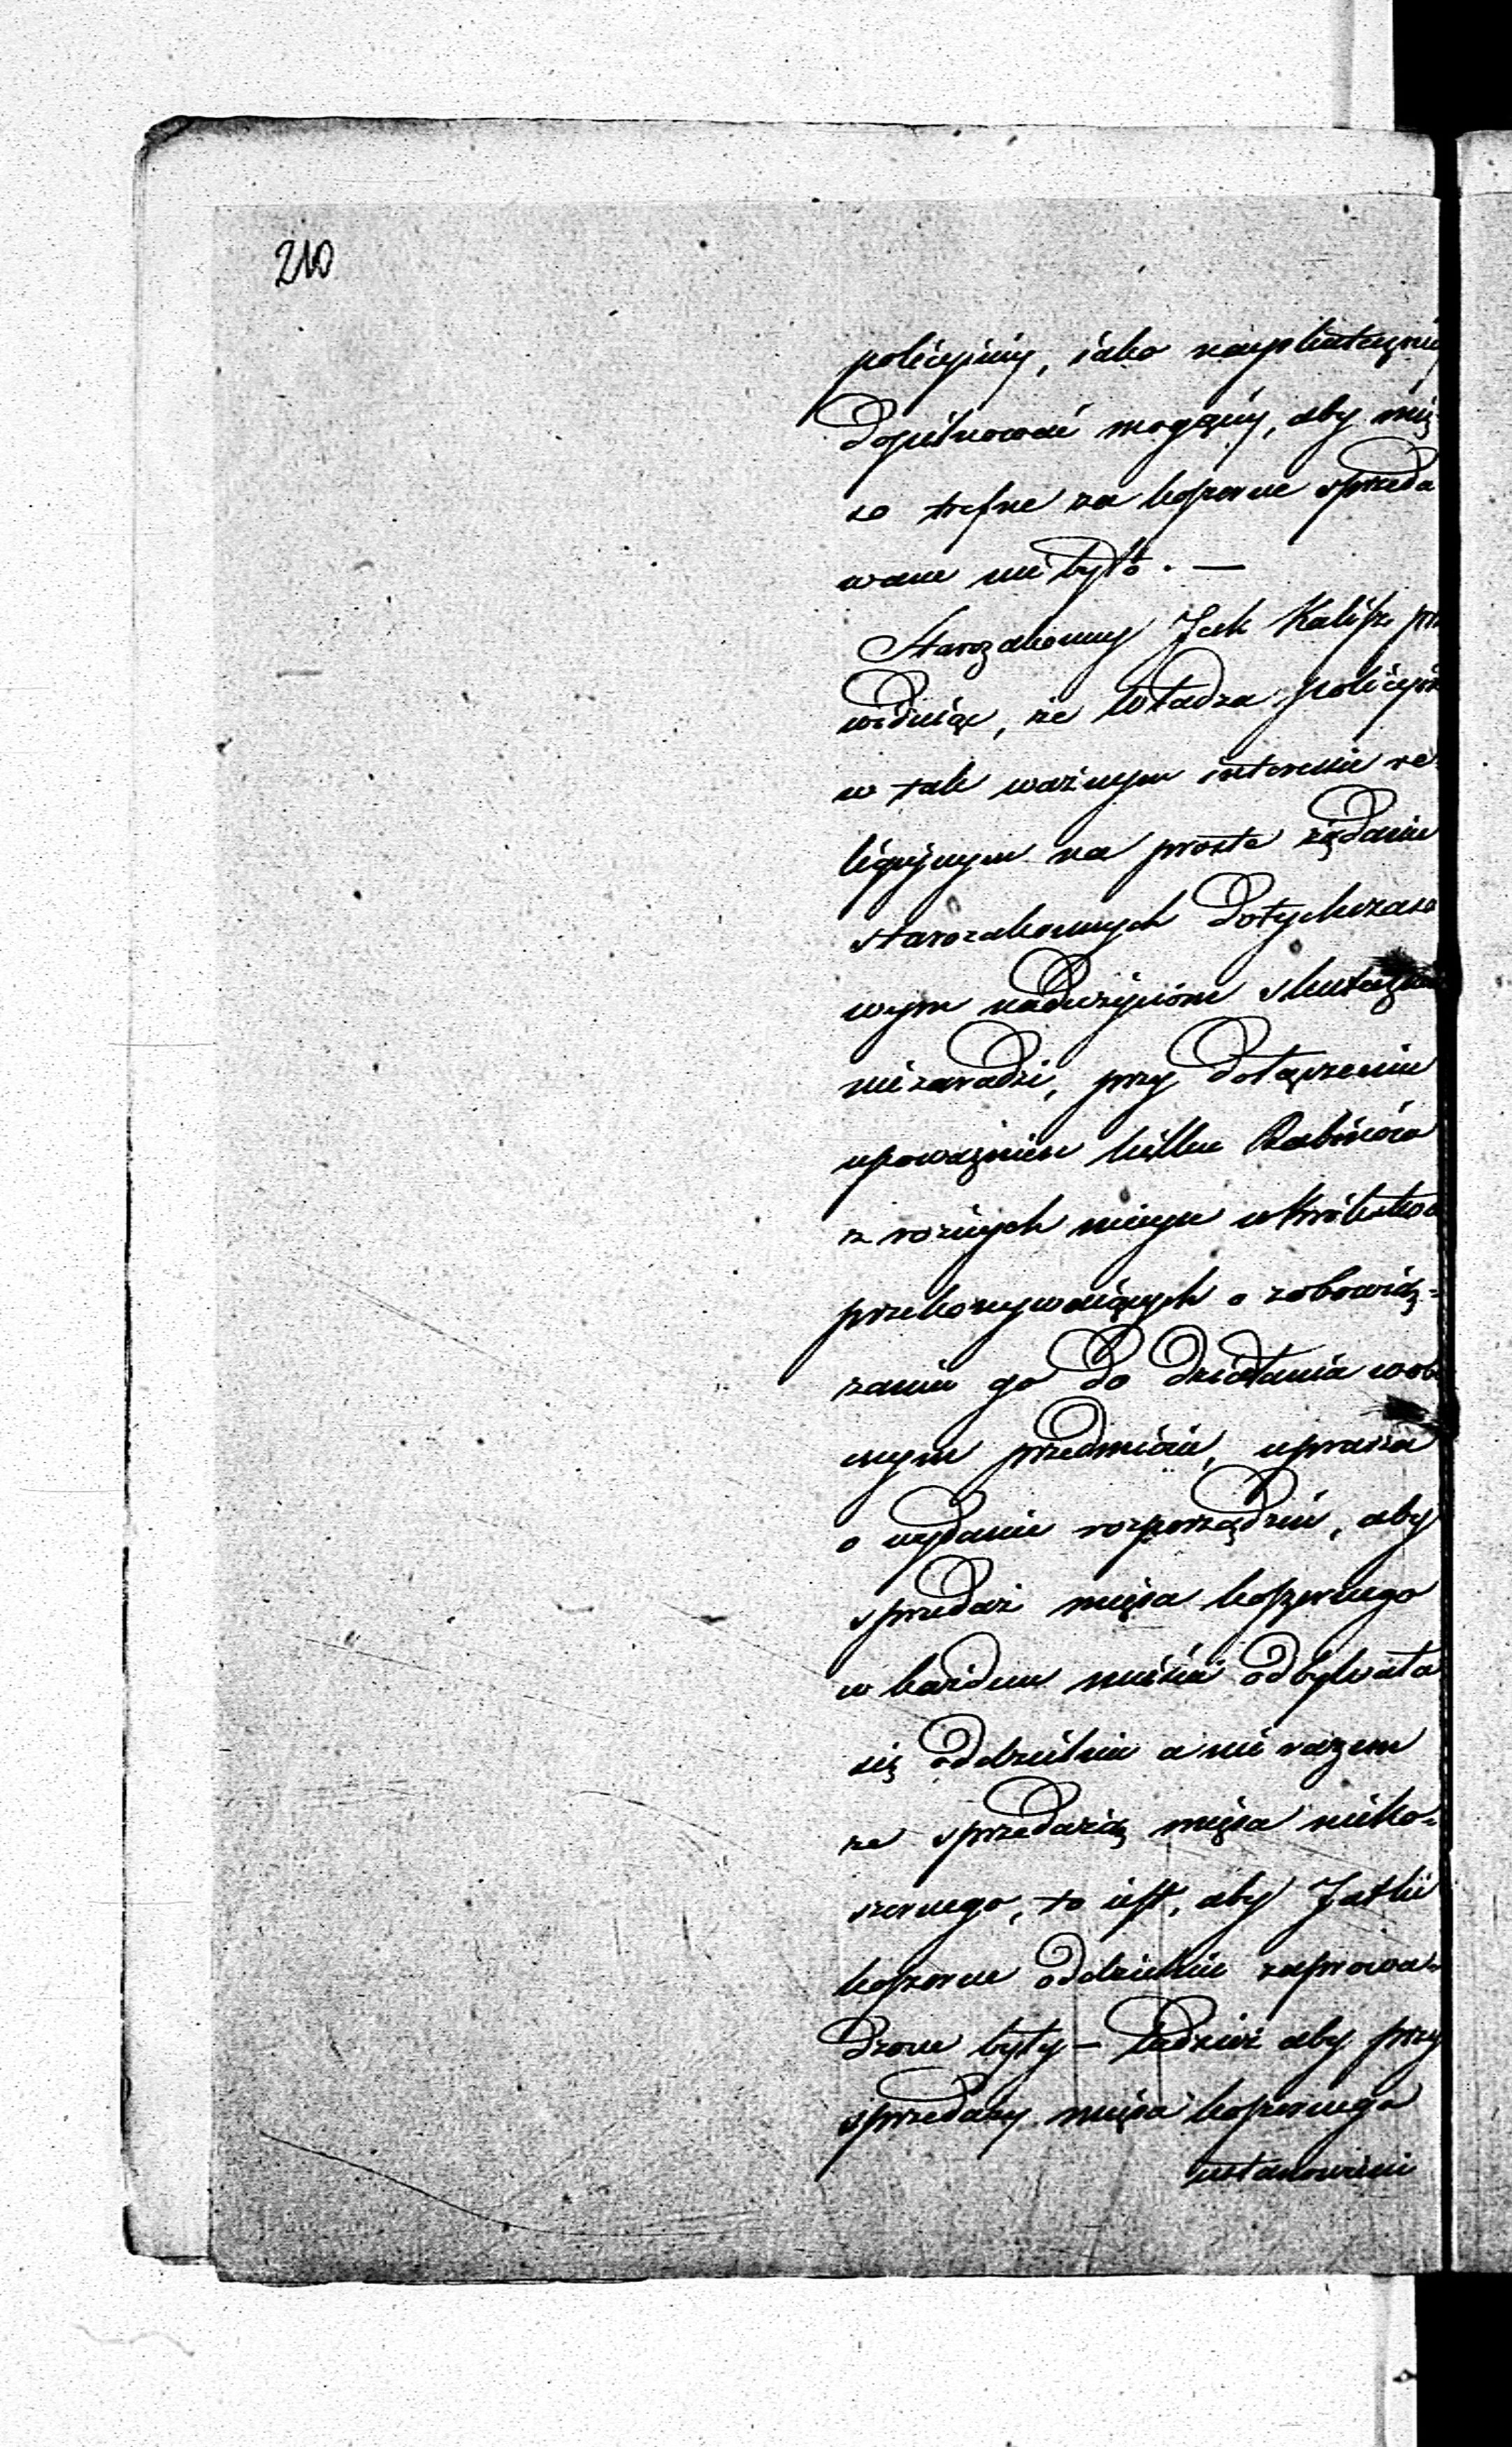 210
policyiney, iako nayskuteczniey
dopilnować mogącey, aby mię-
so trefne za koszerne sprzeda
wane nie było. —
Starozakonny Jcek Kalisz prze
widuiąc, że Władza Policyina
w tak ważnym interessie re-
ligijnym na proste żądanie
starozakonnych dotychczaso
wym nadużyciom skutecznie
nie zaradzi, przy dołączeniu
upoważnień kilku Rabinów
z różnych mieysc w Królestwie
przekonywaiących o zobowią-
zaniu go do działania w obe
cnym przedmiocie, uprasza
o wydanie rozporządzeń, aby
sprzedaż mięsa koszernego
w każdem mieście odbywała
się oddzielnie a nie razem
ze sprzedażą mięsa nieko-
szernego, to iest, aby Jatki
koszerne oddzielnie zaprowa-
dzone były — tudzież aby przy
sprzedaży mięsa koszernego
ustanowieni